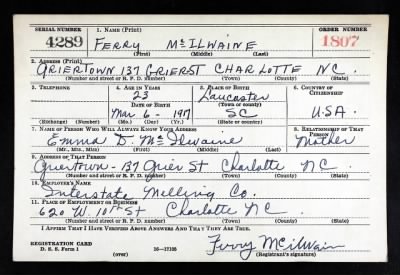 SERIAL NUMBER 1. NAME (Print) ORDER NUMBER
4289 FERRY McILWAINE 1807
(First) (Middle) (Last)
2. ADDRESS (Print)
GRIERTOWN 137 GRIER ST CHARLOTTE NC.
(Number and street or R. F. D. number) (Town) (County) (State)
3. TELEPHONE 4. AGE IN YEARS 5. PLACE OF BIRTH 6. COUNTRY OF CITIZENSHIP
23 Lancaster
DATE OF BIRTH (Town or county)
Mar 6 - 1917 SC U.S.A.
(Exchange) (Number) (Mo.) (Day) (Yr.) (State or country)
7. NAME OF PERSON WHO WILL ALWAYS KNOW YOUR ADDRESS 8. RELATIONSHIP OF THAT PERSON
Emma D. McIlwaine Mother
(Mr., Mrs., Miss) (First) (Middle) (Last)
9. ADDRESS OF THAT PERSON
Griertown - 137 Grier St Charlotte NC
(Number and street or R. F. D. number) (Town) (County) (State)
10. EMPLOYER'S NAME
Interstate Milling Co.
11. PLACE OF EMPLOYMENT OR BUSINESS
620 W 10th St Charlotte NC
(Number and street or R. F. D. number) (Town) (County) (State)
I AFFIRM THAT I HAVE VERIFIED ABOVE ANSWERS AND THAT THEY ARE TRUE.
REGISTRATION CARD
D. S. S. Form 1 16-17105 Ferry McIlwain
(over) (Registrant's signature)